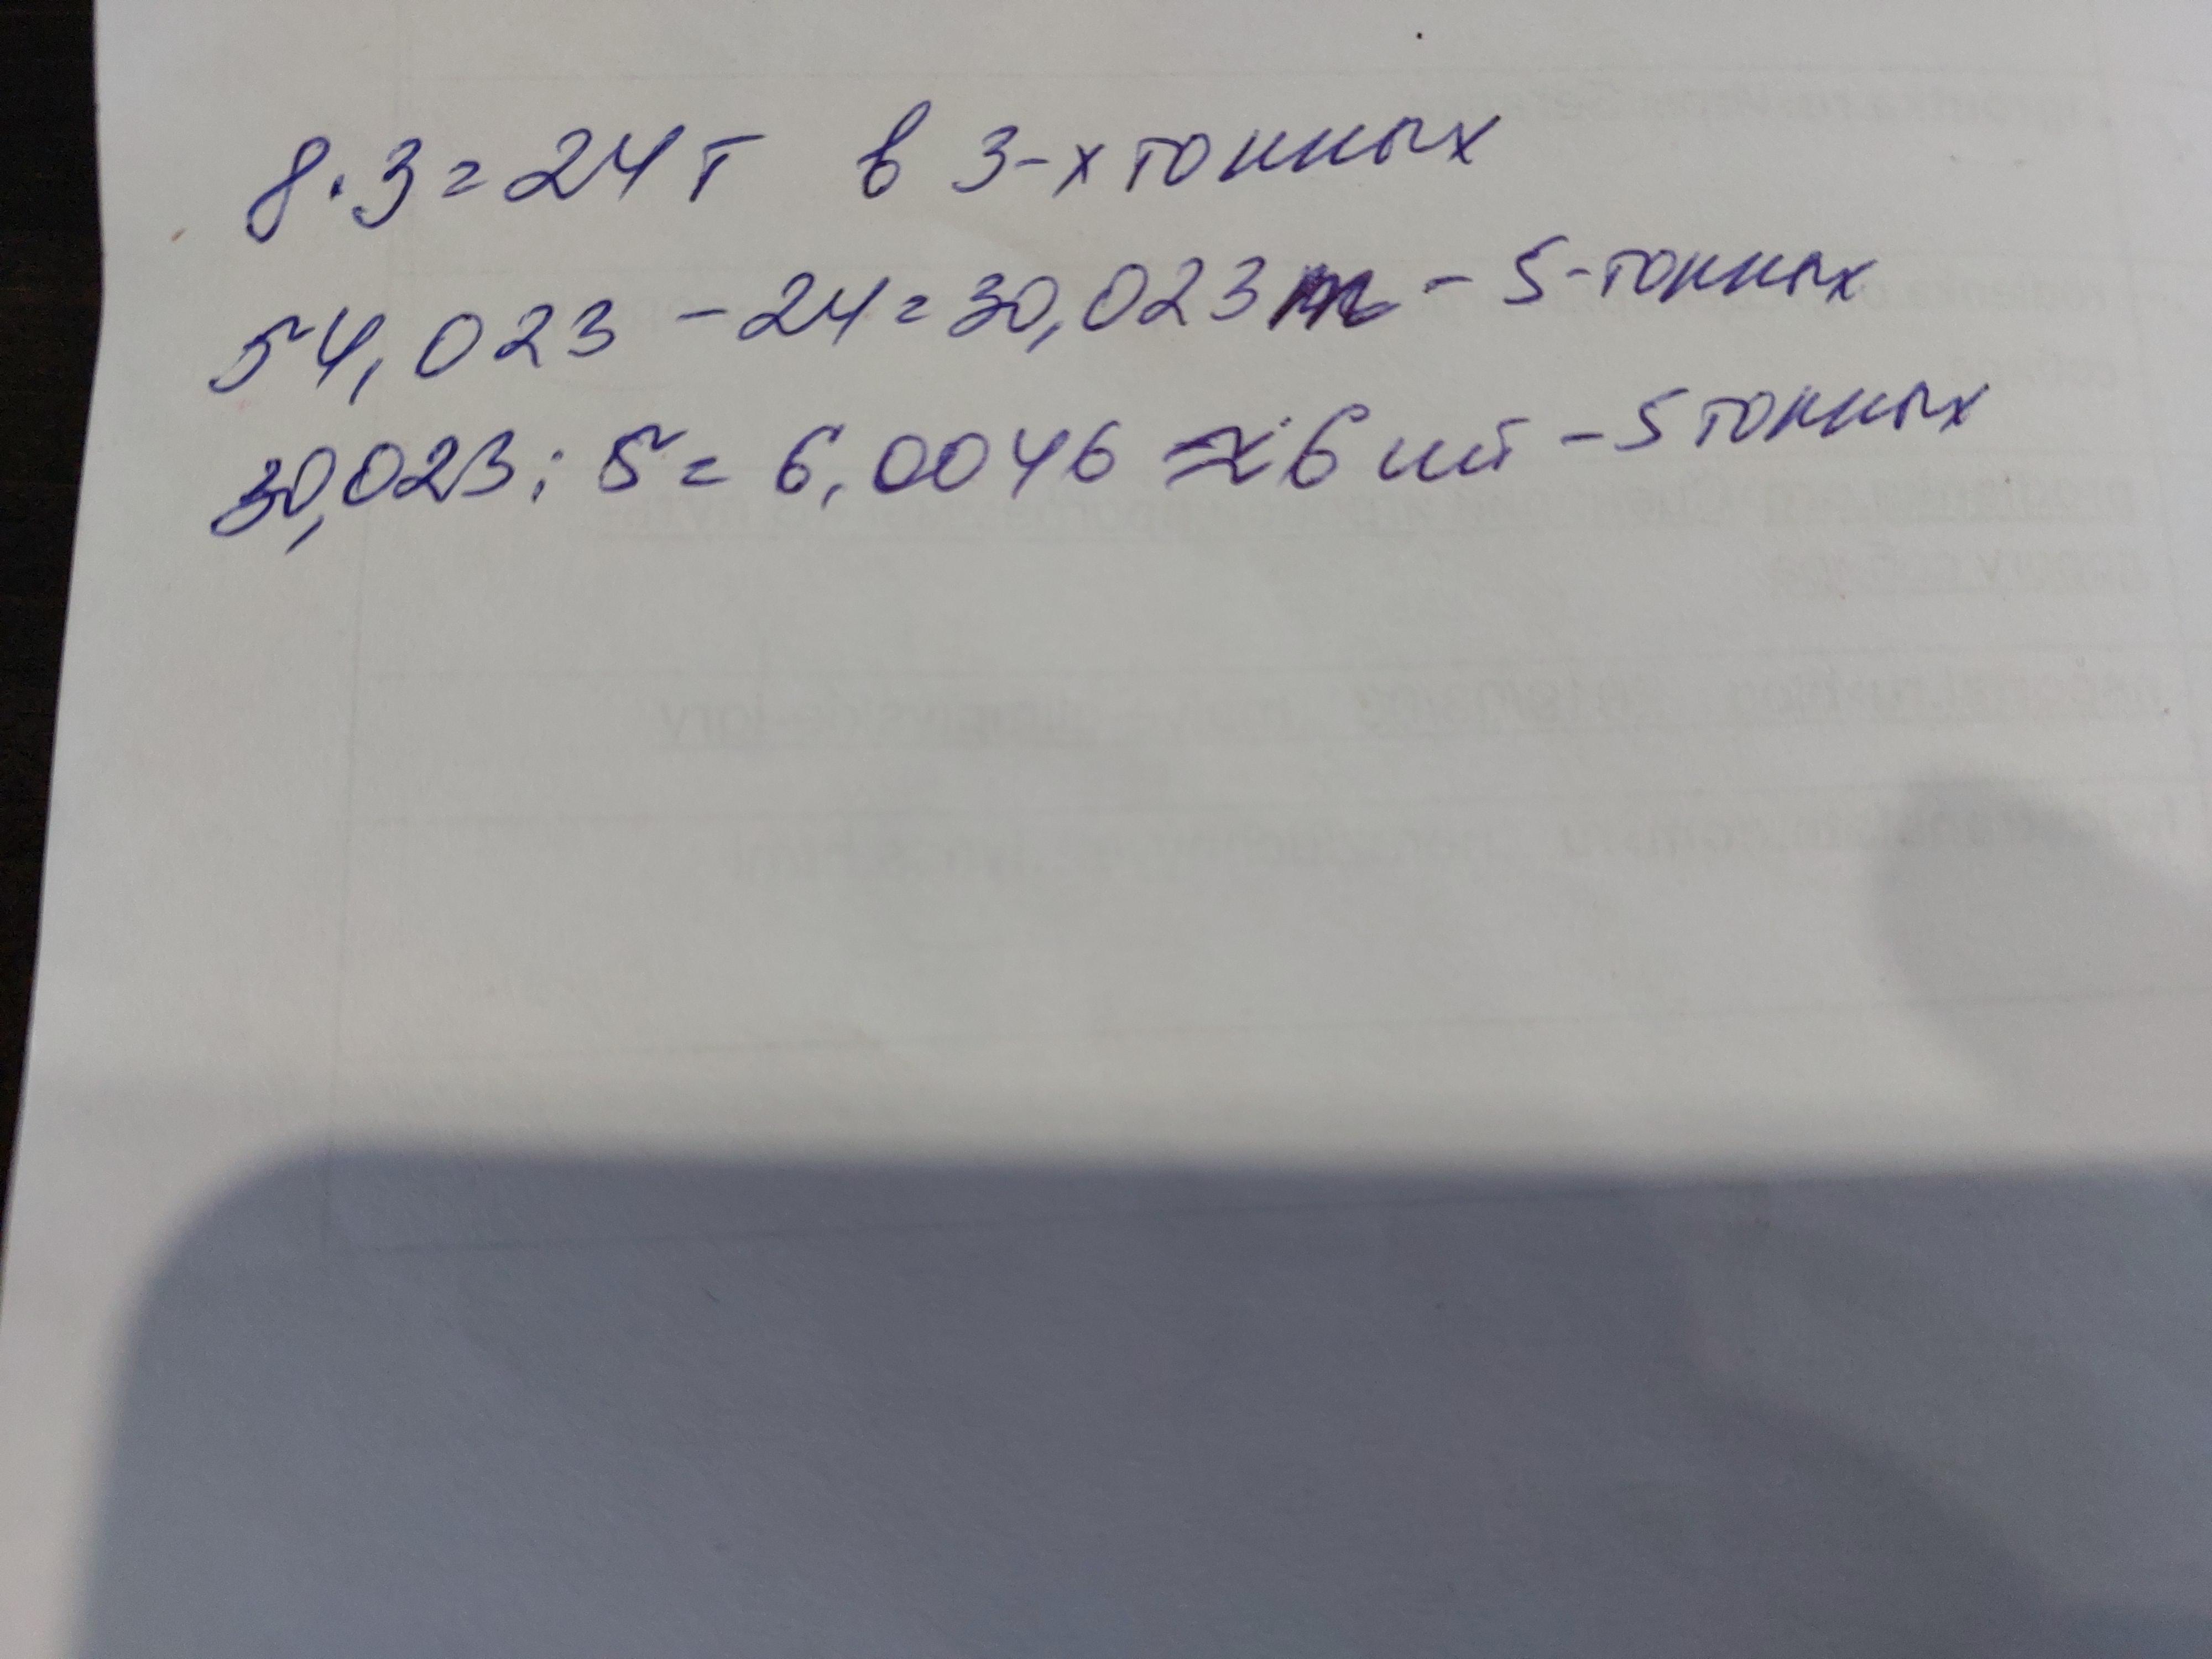 8·3=24 т в 3-х тонных
54,023 - 24 = 30,023 т - 5-тонных
30,023 : 5 = 6,0046 ≈ 6 шт - 5 тонных